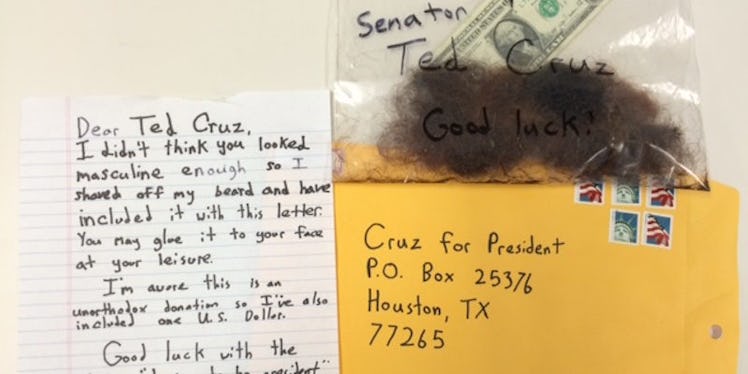 Dear Ted Cruz,
I didn't think you looked
masculine enough so I
shaved off my beard and have
included it with this letter.
You may glue it to your face
at your leisure.
I'm awore this is an
unorthodox donation so I've also
included one U.S. Dollar.
Good luck with the
Senator
Ted Cruz
Good luck!
Cruz for President
P.O. Box 25376
Houston, TX
77265